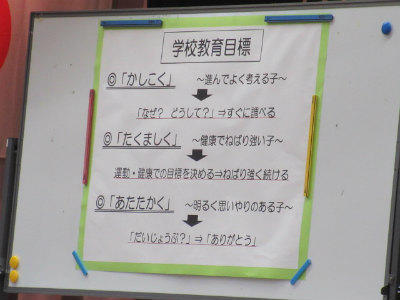 学校教育目標
◎「かしこく」 ～進んでよく考える子～
「なぜ？ どうして？」⇒すぐに調べる
◎「たくましく」 ～健康でねばり強い子～
運動・健康での目標を決める⇒ねばり強く続ける
◎「あたたかく」 ～明るく思いやりのある子～
「だいじょうぶ？」⇒「ありがとう」